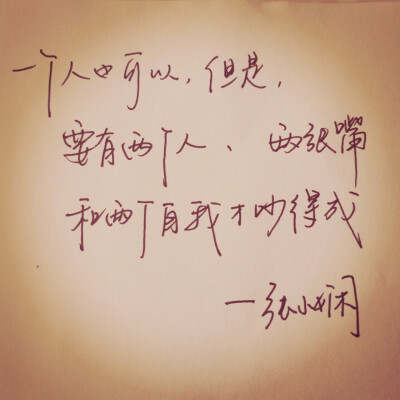 一个人也可以，但是，
要有两个人、两张嘴
和两个自我才吵得成
—张小娴